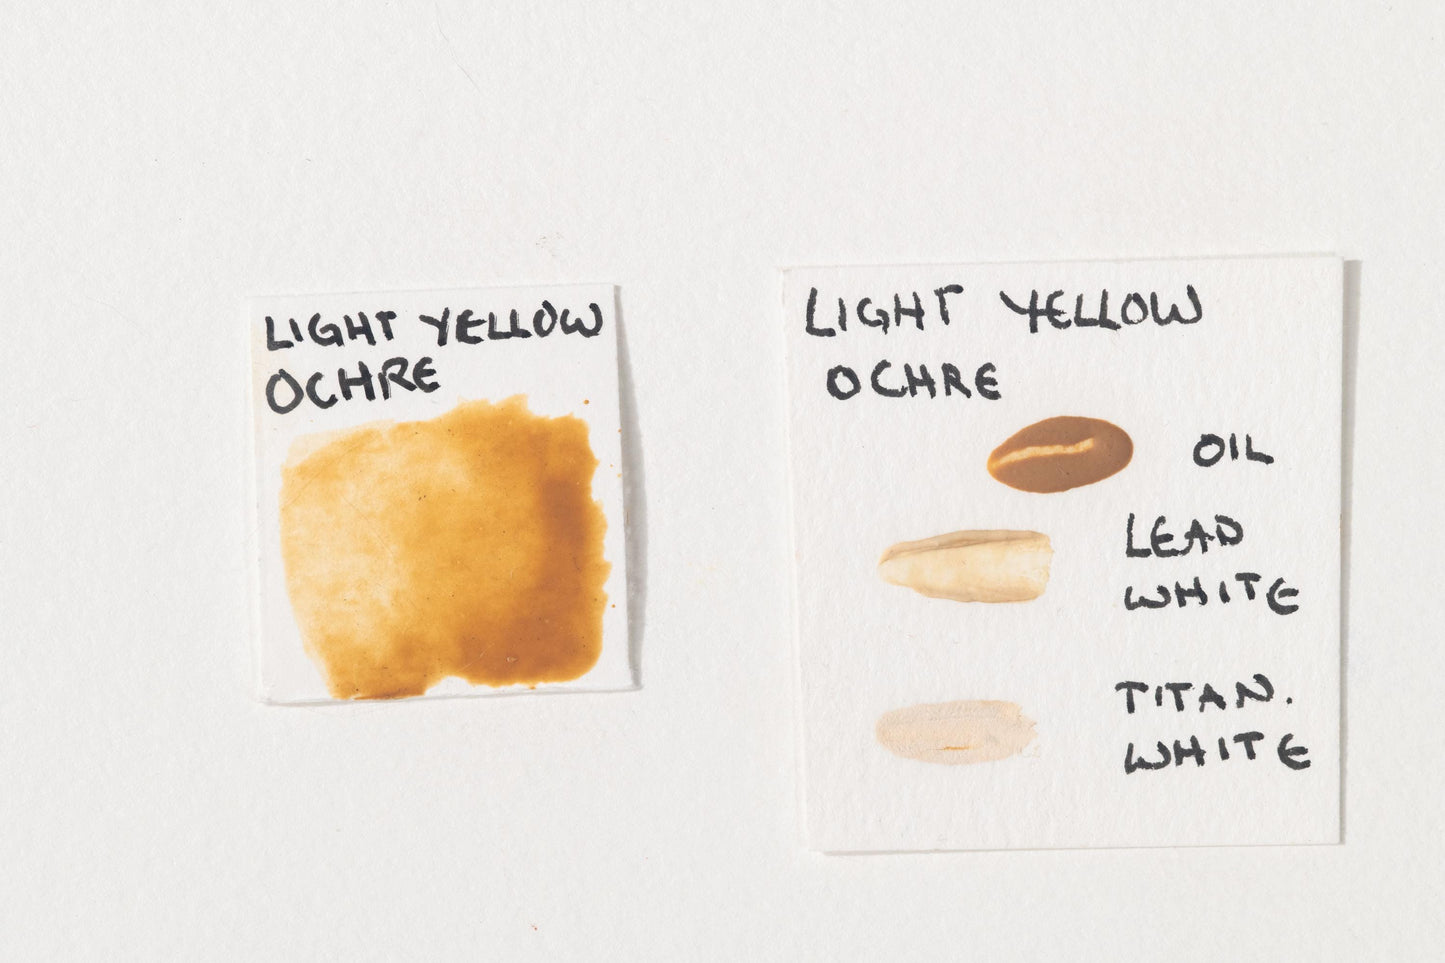 LIGHT YELLOW
OCHRE
LIGHT YELLOW
OCHRE
OIL
LEAD
WHITE
TITAN.
WHITE